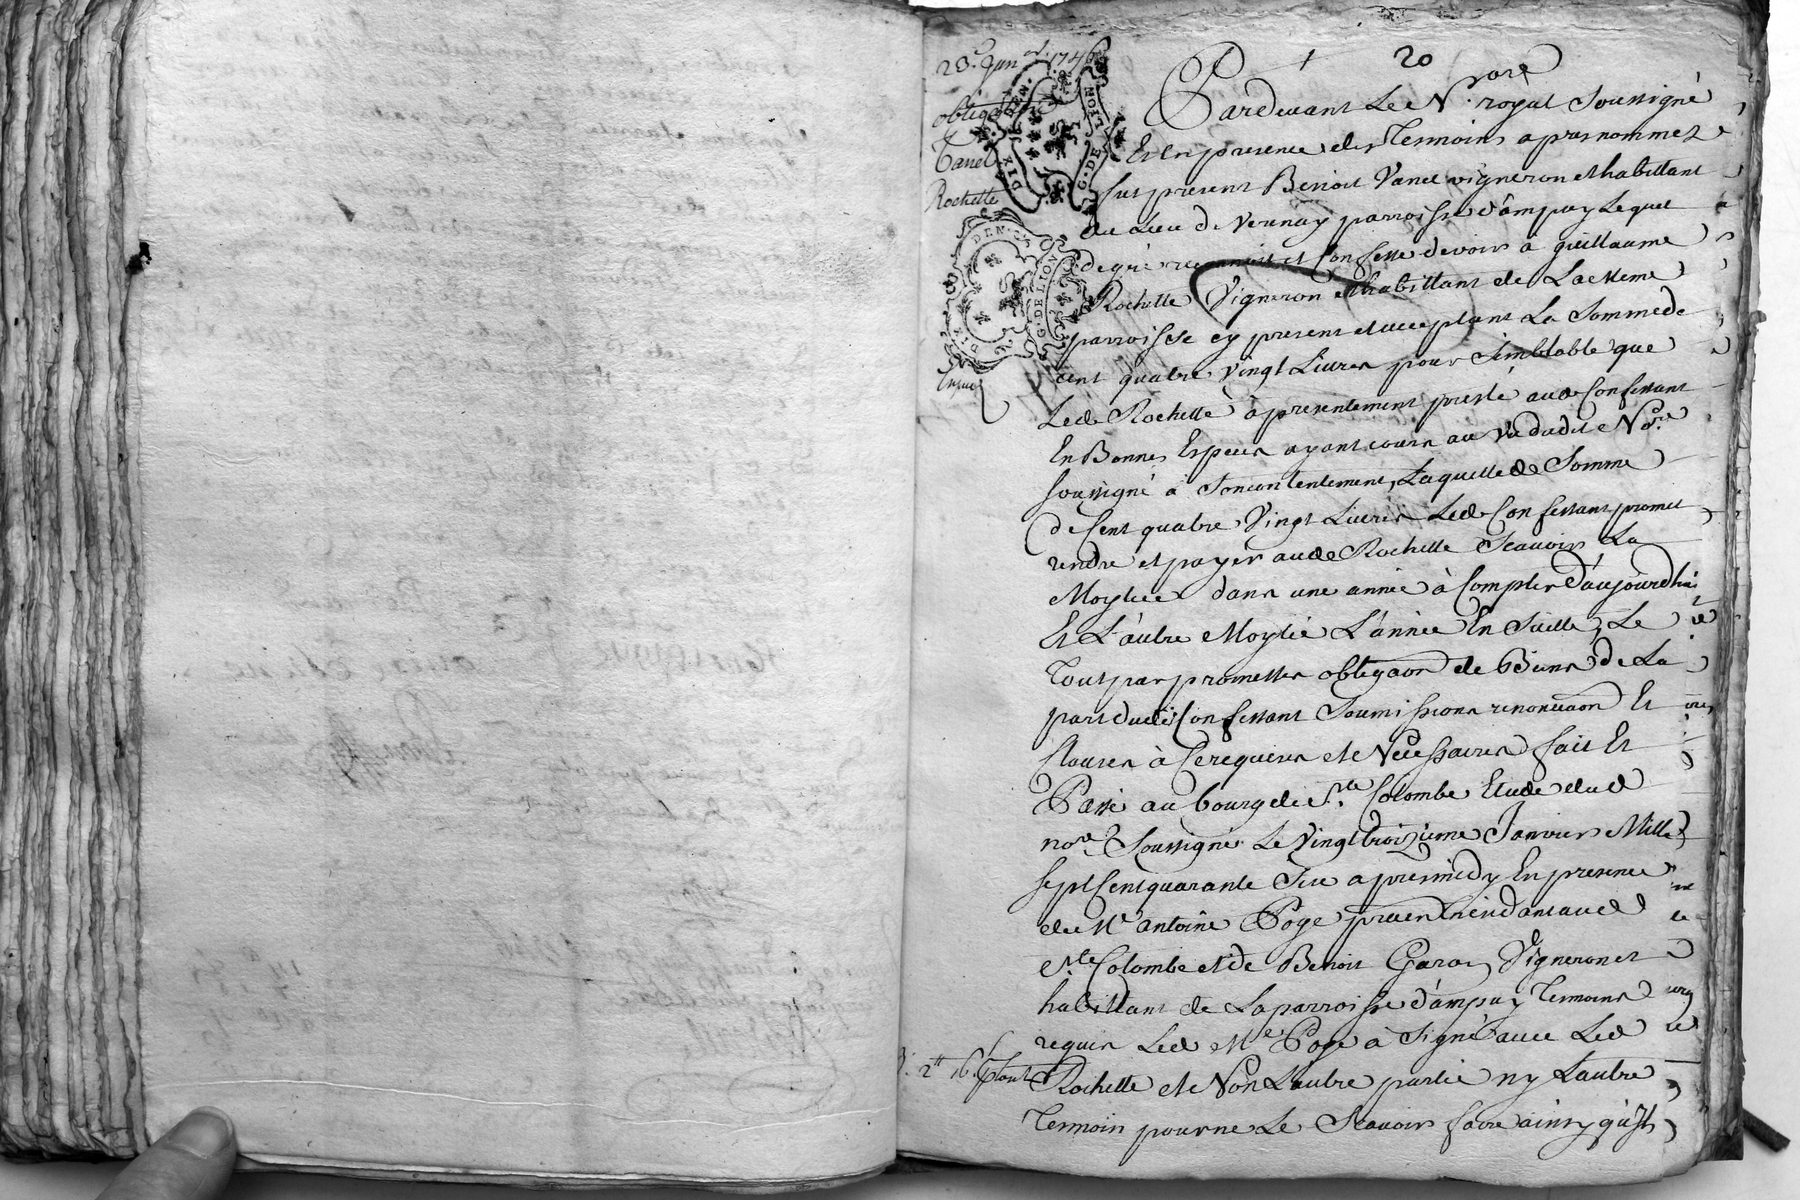 23e Janer 1746
obligation
Vanel
Rochette
DIX DEN.
G. DE LION
DIX DEN. C.
G. DE LION
20
Pardevant Le Nore royal Soussigné
Et En presence des Temoins apres nommez
fut present Benoit Vanel vigneron et habittant
du Lieu de Verenay parroisse d'ampuy Lequel
de gré reconnoit et Confesse devoir à guillaume
Rochette Vigneron et habittant de La Meme
parroisse cy present et acceptant La Somme de
cent quatre Vingt Livres pour Semblable que
Led. Rochette à presentement presté aud. Confessant
En Bonnes Especes ayant cours au Vu dudit Nore
soussigné à Son contentement, Laquelle d. Somme
de Cent quatre Vingt Livres Led. Confessant promet
rendre et payer aud. Rochette Scavoir La
Moytiée dans une année à Compter d'aujourd'hui
Et L'autre Moytié L'année En Suitte, Le
Tout par promesses obligaon de Biens de La
part dud. Confessant Soumissions renonciaon Et
Clauses à Ce requises et Necessaires fait Et
Passé au bourg de Ste Colombe Etude dud.
nore Soussigné Le Vingt troizieme Janvier Mille
sept Cent quarante Six apres midy En presence
de Mr antoine Poge praen residant aud.
Ste Colombe et de Benoit Garon Vigneron et
habittant de La parroisse d'ampuy Temoins
requis Led. Me Poge à Signé avec Led.
Rochette et Non L'autre partie ny L'autre
Temoin pour ne Le Scavoir faire ainsy qu'ils